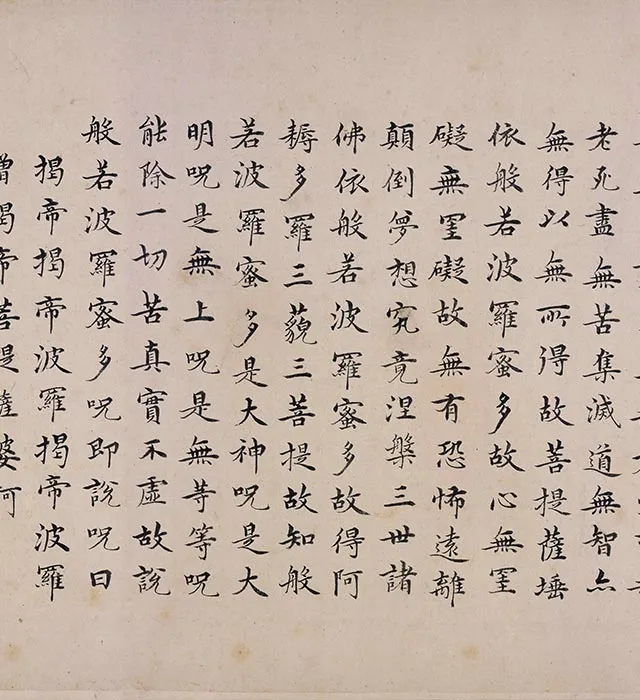 老死盡無苦集滅道無智亦
無得以無所得故菩提薩埵
依般若波羅蜜多故心無罣
礙無罣礙故無有恐怖遠離
顛倒夢想究竟涅槃三世諸
佛依般若波羅蜜多故得阿
耨多羅三藐三菩提故知般
若波羅蜜多是大神呪是大
明呪是無上呪是無等等呪
能除一切苦真實不虛故說
般若波羅蜜多呪即說呪曰
揭帝揭帝波羅揭帝波羅
僧揭帝菩提薩婆訶